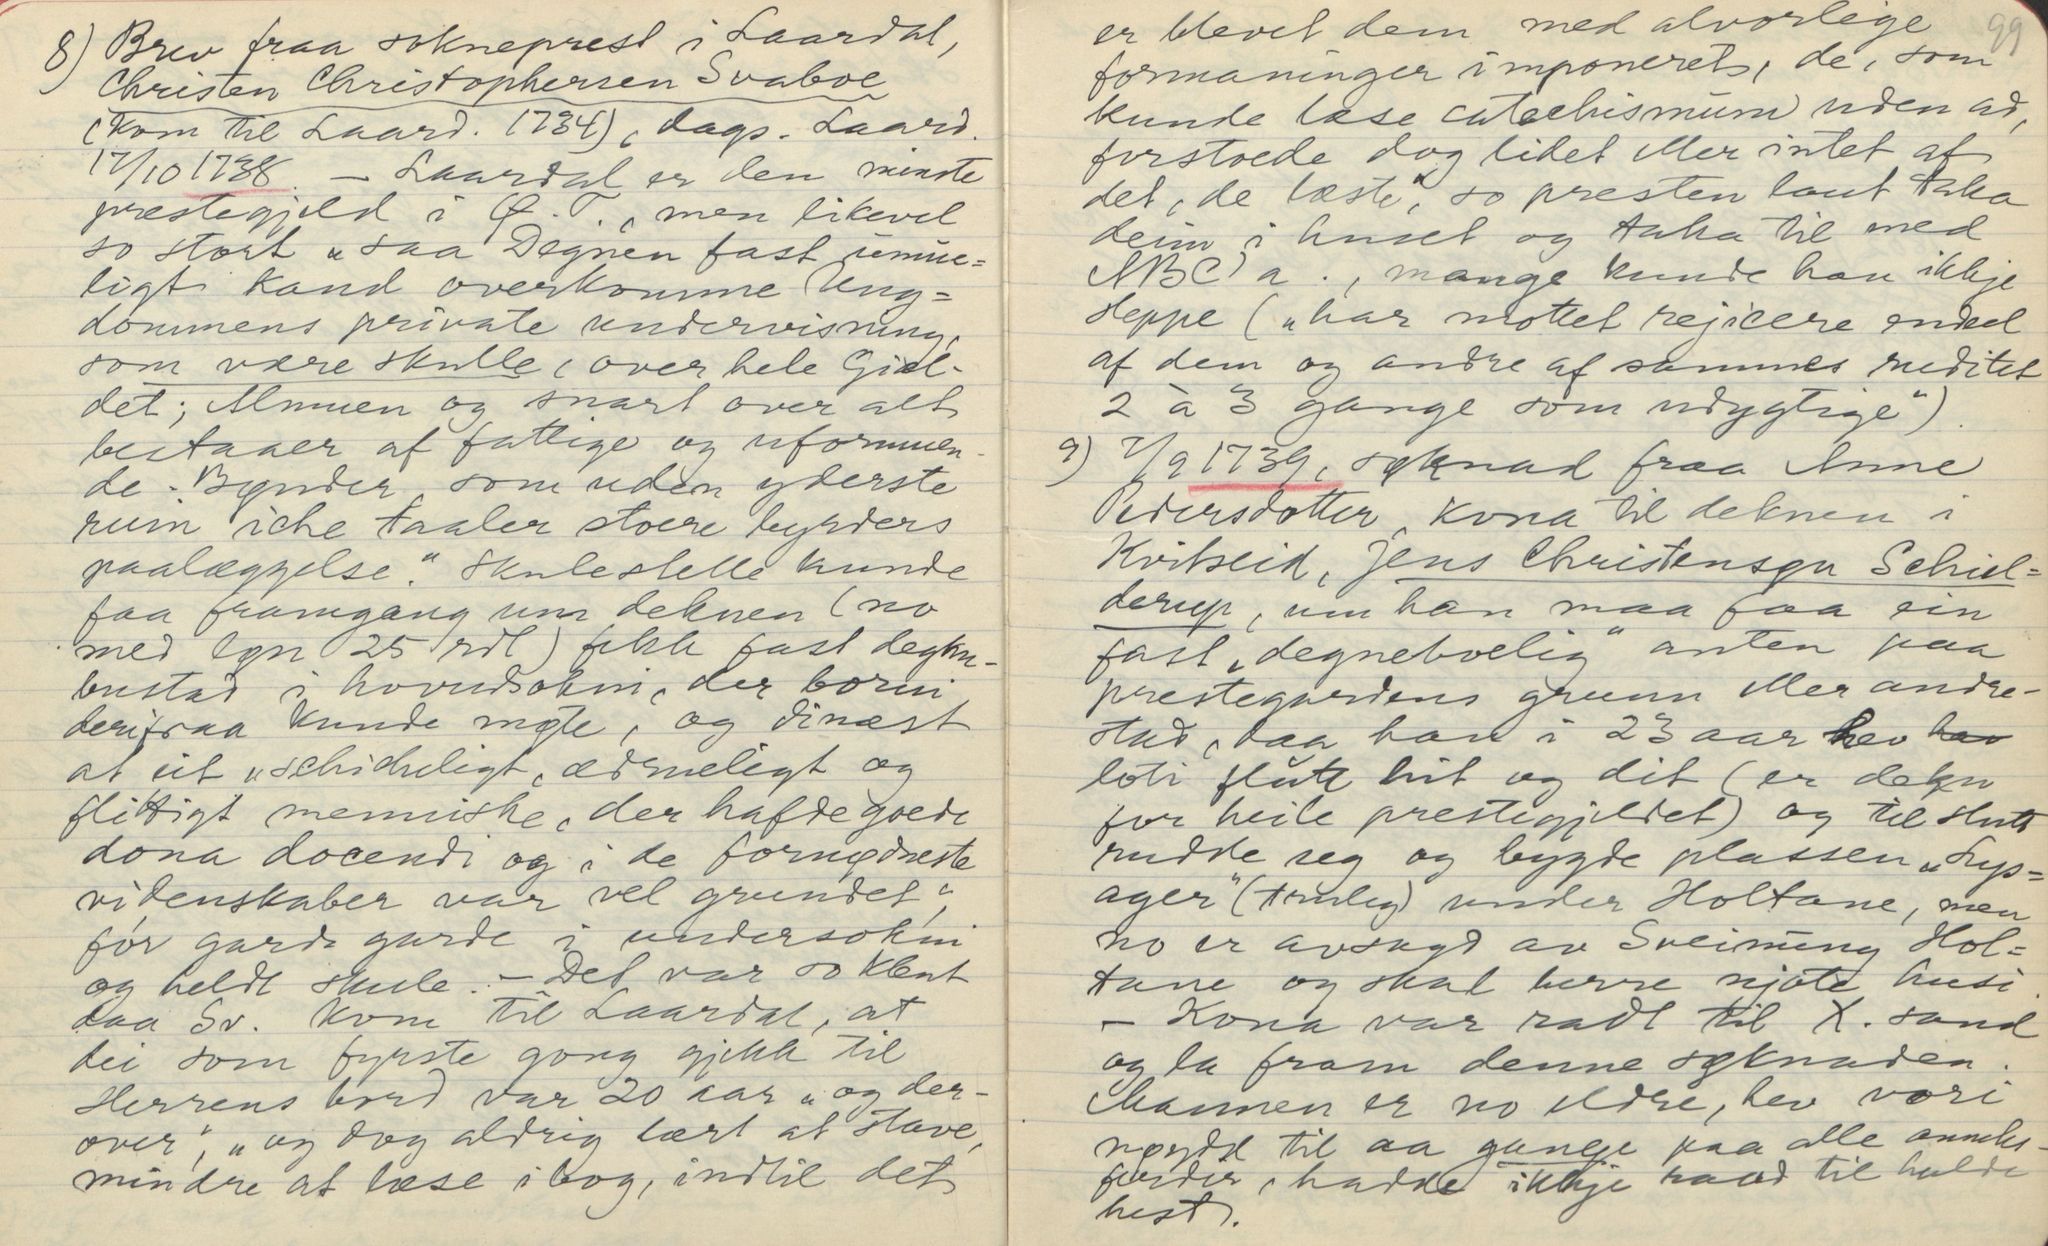 8) Brev fraa sokneprest i Laardal,
Christen Christophersen Svaboe
(kom til Laard. 1734), dags. Laard.
17/10 1738. – Laardal er den minste
prestegjeld i Ø. T., men likevel
so stort „saa Degnen fast umue=
ligt kand overkomme Ung=
dommens private undervisning,
som være skulle, over hele Giel-
det; Almuen og snart over alt
bestaaer af fattige og uformuen-
de Bønder, som uden yderste
ruin iche taaler støere byrders
paalæggelse." Skulestelle kunde
faa framgang um deknen (no
med løn 25 rdl) fekk fast dekn-
bustad i hovudsokni, der borni
derifraa kunde møte, og dinæst
at eit „schicheligt, ædrueligt og
flittigt menniske, der hafde goede
dona docendi og i de fornødneste
videnskaber var vel grundet",
for gard i garde i undersokni
og heldt skule. – Det var so klent
daa Sv. kom til Laardal, at
dei som fyrste gong gjekk til
Herrens bord var 20 aar „og der-
over", „og dog aldrig lært at stave,
mindre at læse i bog, indtil det
99
er blevet dem med alvorlige
formaninger imponerets, de, som
kunde læse catechismum uden ad,
forstoede dog lidet eller intet af
det, de læste", so presten laut taka
deim i huset og taka til med
ABC'a., mange kunde han ikkje
sleppe („har mottet rejicere endeel
af dem og andre af sammes reditet
2 à 3 gange som udygtige")
9) 7/9 1739, søknad fraa Anne
Pedersdotter, kona til deknen i
Kvitseid, Jens Christensøn Schiel=
derup, um han maa faa ein
fast „degneboelig" anten paa
prestegardens grunn eller andre-
stad, daa han i 23 aar hev
loti flutt hit og dit (er dekn
for heile prestegjeldet) og til slutt
rudde seg og bygde plassen „Lys=
ager" (truleg) under Holtane, men
no er avsagd av Sveinung Hol=
tane og skal berre njote husi.
– Kona var radt til X. sand
og la fram denne søknaden.
Mannen er no eldre, hev vori
nøydd til aa gange paa alle anneks-
ferder, hadde ikkje raad til halde
hest.